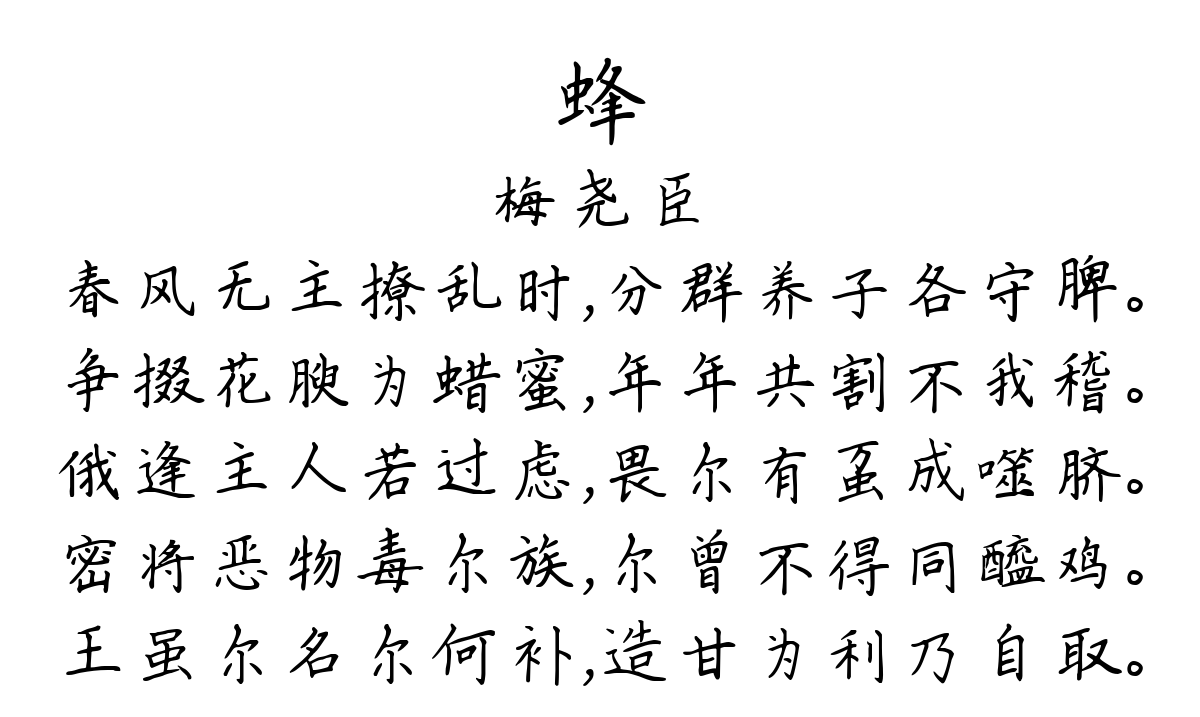 蜂
梅尧臣
春风无主撩乱时,分群养子各守脾。
争掇花腴为蜡蜜,年年共割不我稽。
俄逢主人若过虑,畏尔有虿成噬脐。
密将恶物毒尔族,尔曾不得同醯鸡。
王虽尔名尔何补,造甘为利乃自取。